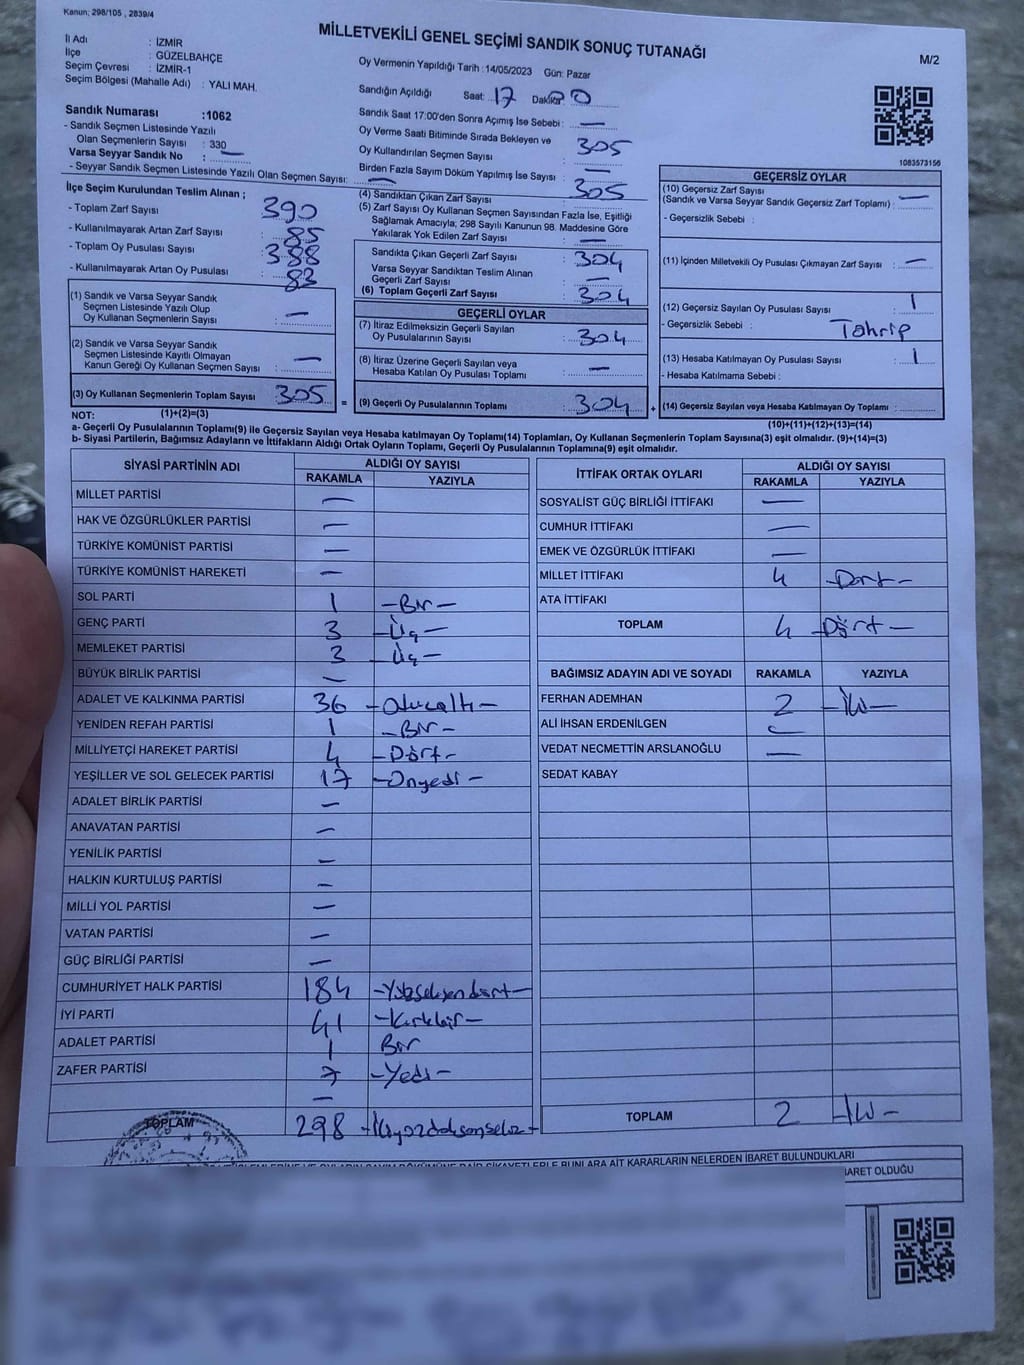 Kanun; 298/105 , 2839/4
MİLLETVEKİLİ GENEL SEÇİMİ SANDIK SONUÇ TUTANAĞI
M/2
İl Adı : İZMİR
İlçe : GÜZELBAHÇE
Seçim Çevresi : İZMİR-1
Seçim Bölgesi (Mahalle Adı) : YALI MAH.
Oy Vermenin Yapıldığı Tarih : 14/05/2023 Gün: Pazar
Sandığın Açıldığı Saat: 17 Dakika:
Sandık Saat 17:00'den Sonra Açımış İse Sebebi : —
Oy Verme Saati Bitiminde Sırada Bekleyen ve
Oy Kullandırılan Seçmen Sayısı : 305
Birden Fazla Sayım Döküm Yapılmış İse Sayısı : —
Sandık Numarası :1062
- Sandık Seçmen Listesinde Yazılı
Olan Seçmenlerin Sayısı : 330
Varsa Seyyar Sandık No : —
- Seyyar Sandık Seçmen Listesinde Yazılı Olan Seçmen Sayısı: —
1083573156
İlçe Seçim Kurulundan Teslim Alınan ;
- Toplam Zarf Sayısı : 390
- Kullanılmayarak Artan Zarf Sayısı : 85
- Toplam Oy Pusulası Sayısı : 388
- Kullanılmayarak Artan Oy Pusulası : 83
(1) Sandık ve Varsa Seyyar Sandık
Seçmen Listesinde Yazılı Olup
Oy Kullanan Seçmenlerin Sayısı : —
(2) Sandık ve Varsa Seyyar Sandık
Seçmen Listesinde Kayıtlı Olmayan
Kanun Gereği Oy Kullanan Seçmen Sayısı : —
(3) Oy Kullanan Seçmenlerin Toplam Sayısı : 305 =
(4) Sandıktan Çıkan Zarf Sayısı : 305
(5) Zarf Sayısı Oy Kullanan Seçmen Sayısından Fazla İse, Eşitliği
Sağlamak Amacıyla; 298 Sayılı Kanunun 98. Maddesine Göre
Yakılarak Yok Edilen Zarf Sayısı : —
Sandıkta Çıkan Geçerli Zarf Sayısı : 304
Varsa Seyyar Sandıktan Teslim Alınan
Geçerli Zarf Sayısı : —
(6) Toplam Geçerli Zarf Sayısı : 304
GEÇERLİ OYLAR
(7) İtiraz Edilmeksizin Geçerli Sayılan
Oy Pusulalarının Sayısı : 304
(8) İtiraz Üzerine Geçerli Sayılan veya
Hesaba Katılan Oy Pusulası Toplamı : —
(9) Geçerli Oy Pusulalarının Toplamı : 304 +
GEÇERSİZ OYLAR
(10) Geçersiz Zarf Sayısı
(Sandık ve Varsa Seyyar Sandık Geçersiz Zarf Toplamı) : —
- Geçersizlik Sebebi :
(11) İçinden Milletvekili Oy Pusulası Çıkmayan Zarf Sayısı : —
(12) Geçersiz Sayılan Oy Pusulası Sayısı : 1
- Geçersizlik Sebebi : Tahrip
(13) Hesaba Katılmayan Oy Pusulası Sayısı : 1
- Hesaba Katılmama Sebebi :
(14) Geçersiz Sayılan veya Hesaba Katılmayan Oy Toplamı :
NOT: (1)+(2)=(3) (10)+(11)+(12)+(13)=(14)
a- Geçerli Oy Pusulalarının Toplamı(9) ile Geçersiz Sayılan veya Hesaba katılmayan Oy Toplamı(14) Toplamları, Oy Kullanan Seçmenlerin Toplam Sayısına(3) eşit olmalıdır. (9)+(14)=(3)
b- Siyasi Partilerin, Bağımsız Adayların ve İttifakların Aldığı Ortak Oyların Toplamı, Geçerli Oy Pusulalarının Toplamına(9) eşit olmalıdır.
SİYASİ PARTİNİN ADI ALDIĞI OY SAYISI
RAKAMLA YAZIYLA
MİLLET PARTİSİ —
HAK VE ÖZGÜRLÜKLER PARTİSİ —
TÜRKİYE KOMÜNİST PARTİSİ —
TÜRKİYE KOMÜNİST HAREKETİ —
SOL PARTİ 1 -Bir-
GENÇ PARTİ 3 -Üç-
MEMLEKET PARTİSİ 3 -Üç-
BÜYÜK BİRLİK PARTİSİ —
ADALET VE KALKINMA PARTİSİ 36 -Otuzaltı-
YENİDEN REFAH PARTİSİ 1 -Bir-
MİLLİYETÇİ HAREKET PARTİSİ 4 -Dört-
YEŞİLLER VE SOL GELECEK PARTİSİ 17 -Onyedi-
ADALET BİRLİK PARTİSİ —
ANAVATAN PARTİSİ —
YENİLİK PARTİSİ —
HALKIN KURTULUŞ PARTİSİ —
MİLLİ YOL PARTİSİ —
VATAN PARTİSİ —
GÜÇ BİRLİĞİ PARTİSİ —
CUMHURİYET HALK PARTİSİ 184 -Yüzseksendört-
İYİ PARTİ 41 -Kırkbir-
ADALET PARTİSİ 1 Bir
ZAFER PARTİSİ 7 -Yedi-
—
TOPLAM 298 -İkiyüzdoksansekiz-
İTTİFAK ORTAK OYLARI ALDIĞI OY SAYISI
RAKAMLA YAZIYLA
SOSYALİST GÜÇ BİRLİĞİ İTTİFAKI —
CUMHUR İTTİFAKI —
EMEK VE ÖZGÜRLÜK İTTİFAKI —
MİLLET İTTİFAKI 4 -Dört-
ATA İTTİFAKI
TOPLAM 4 -Dört-
BAĞIMSIZ ADAYIN ADI VE SOYADI RAKAMLA YAZIYLA
FERHAN ADEMHAN 2 -İki-
ALİ İHSAN ERDENİLGEN —
VEDAT NECMETTİN ARSLANOĞLU —
SEDAT KABAY
TOPLAM 2 -İki-
OYLARIN SAYIM DÖKÜMÜNE DAİR ŞİKAYETLERLE BUNLARA AİT KARARLARIN NELERDEN İBARET BULUNDUKLARI
İBARET OLDUĞU